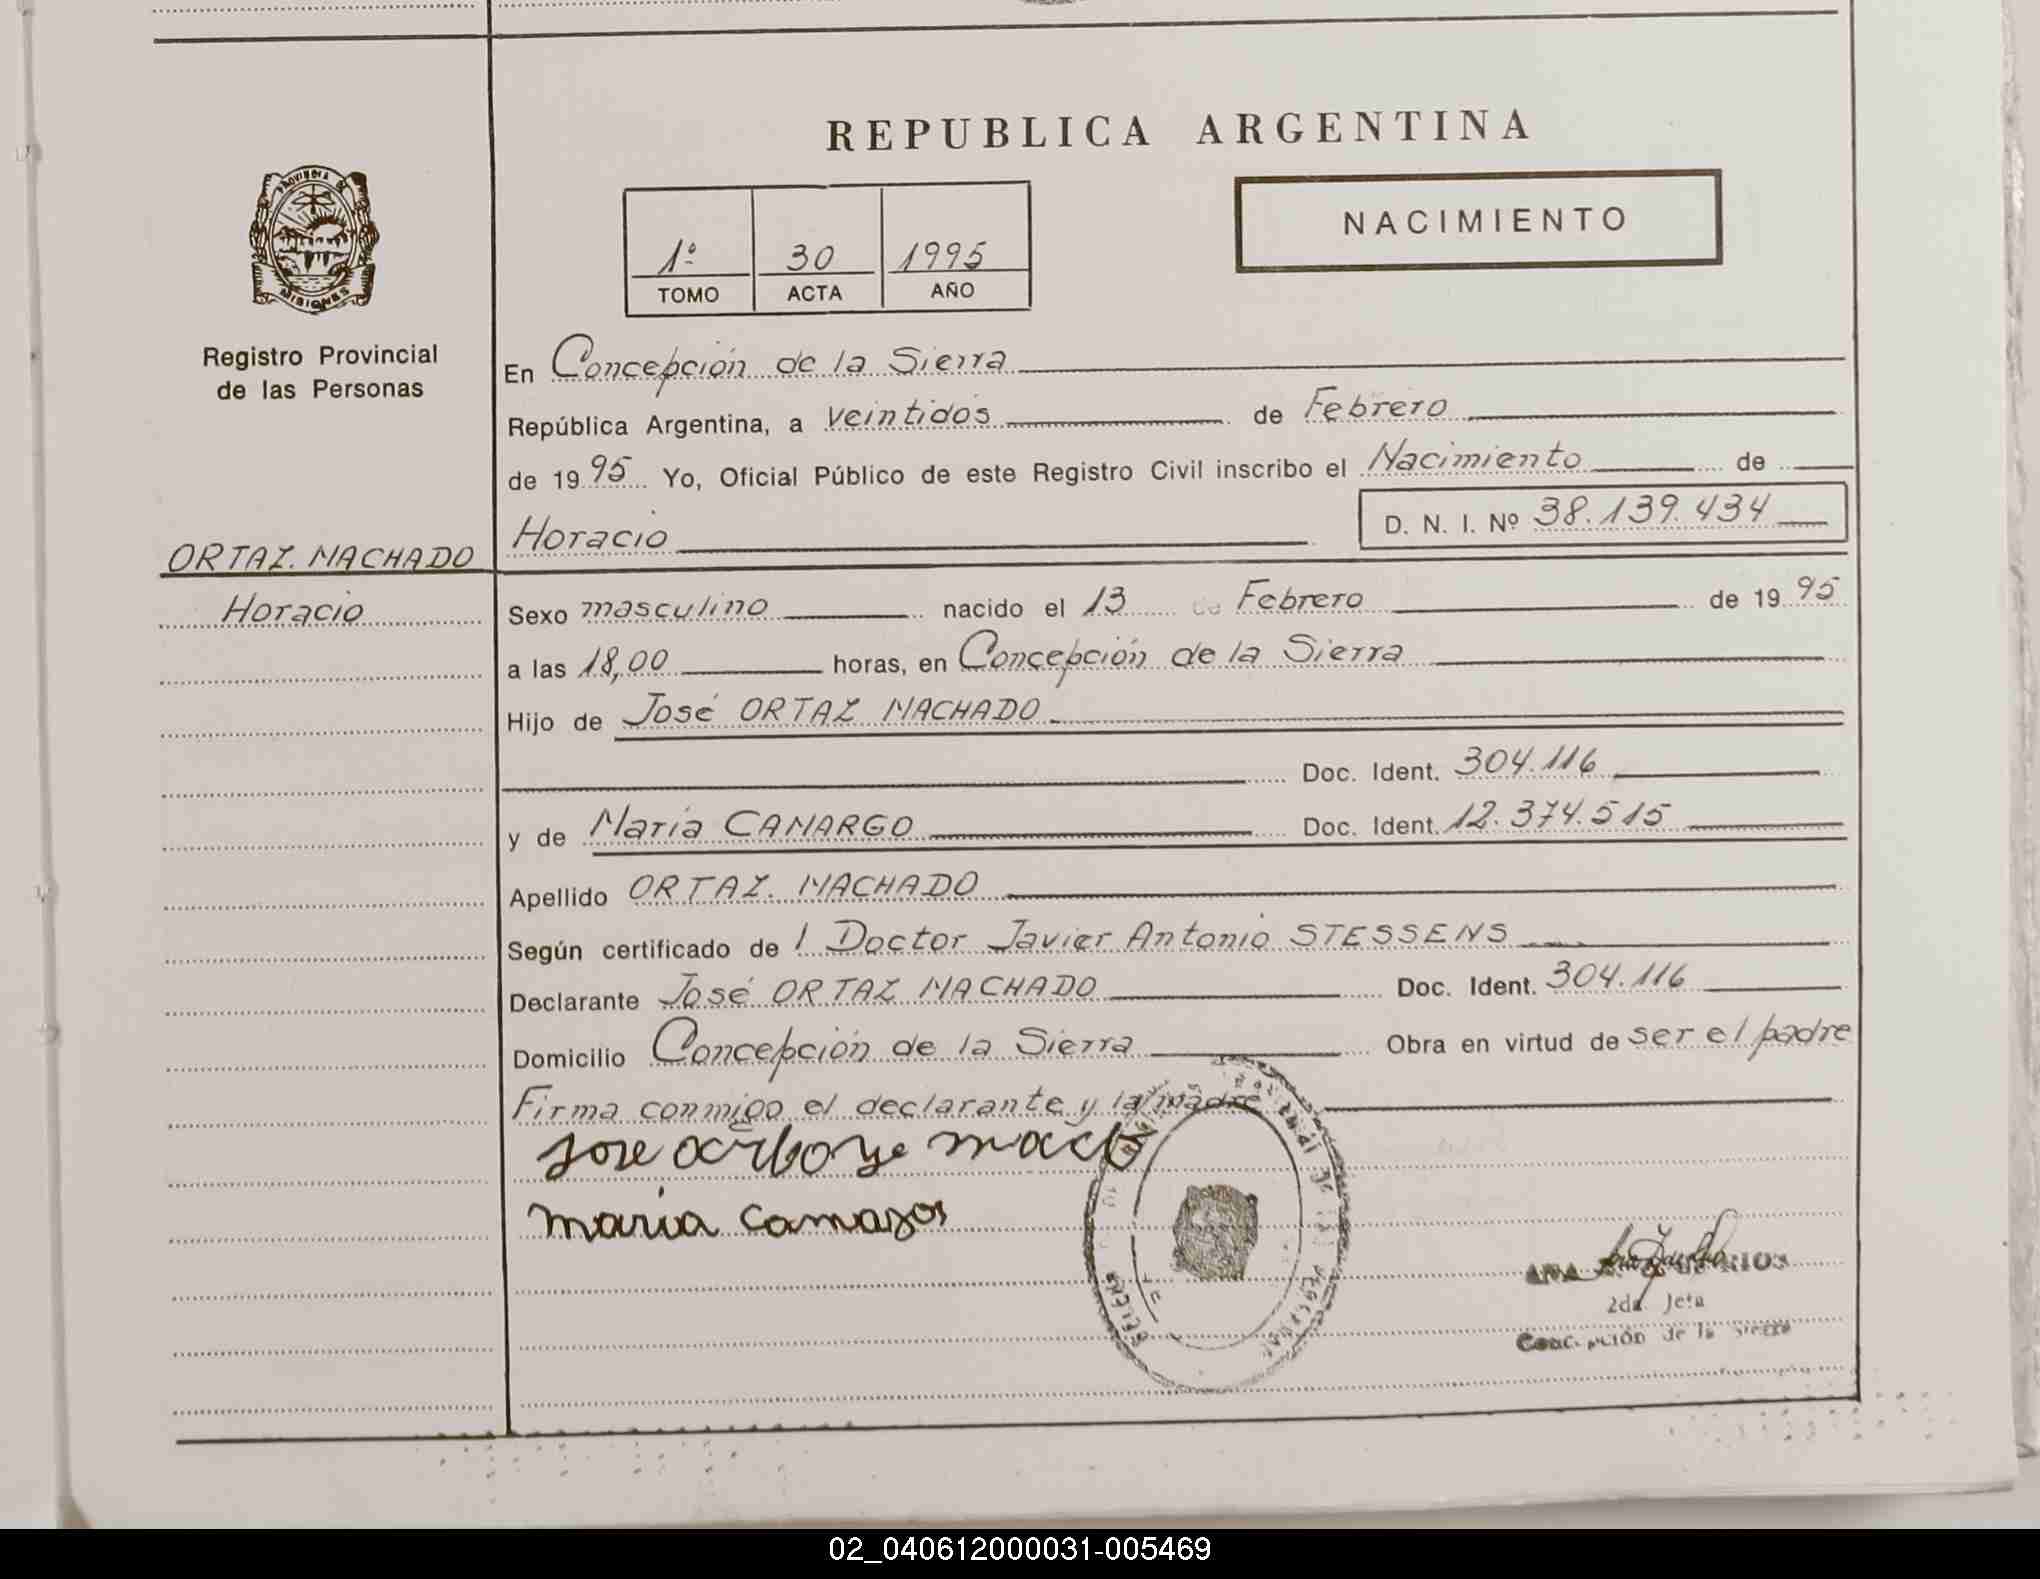 REPUBLICA ARGENTINA
NACIMIENTO
1º 30 1995
TOMO ACTA AÑO
PROVINCIA DE
MISIONES
Registro Provincial
de las Personas
En Concepción de la Sierra
República Argentina, a veintidós de Febrero
de 1995 Yo, Oficial Público de este Registro Civil inscribo el Nacimiento de
Horacio D. N. I. Nº 38.139.434
ORTAZ. MACHADO
Horacio
Sexo masculino nacido el 13 de Febrero de 1995
a las 18,00 horas, en Concepción de la Sierra
Hijo de José ORTAZ MACHADO
Doc. Ident. 304.116
y de María CAMARGO Doc. Ident. 12.374.515
Apellido ORTAZ. MACHADO
Según certificado de l Doctor Javier Antonio STESSENS
Declarante José ORTAZ MACHADO Doc. Ident. 304.116
Domicilio Concepción de la Sierra Obra en virtud de ser el padre
Firma conmigo el declarante y la madre
Jose
maria
ANA RIOS
2da Jefa
Concepción de la Sierra
02_040612000031-005469